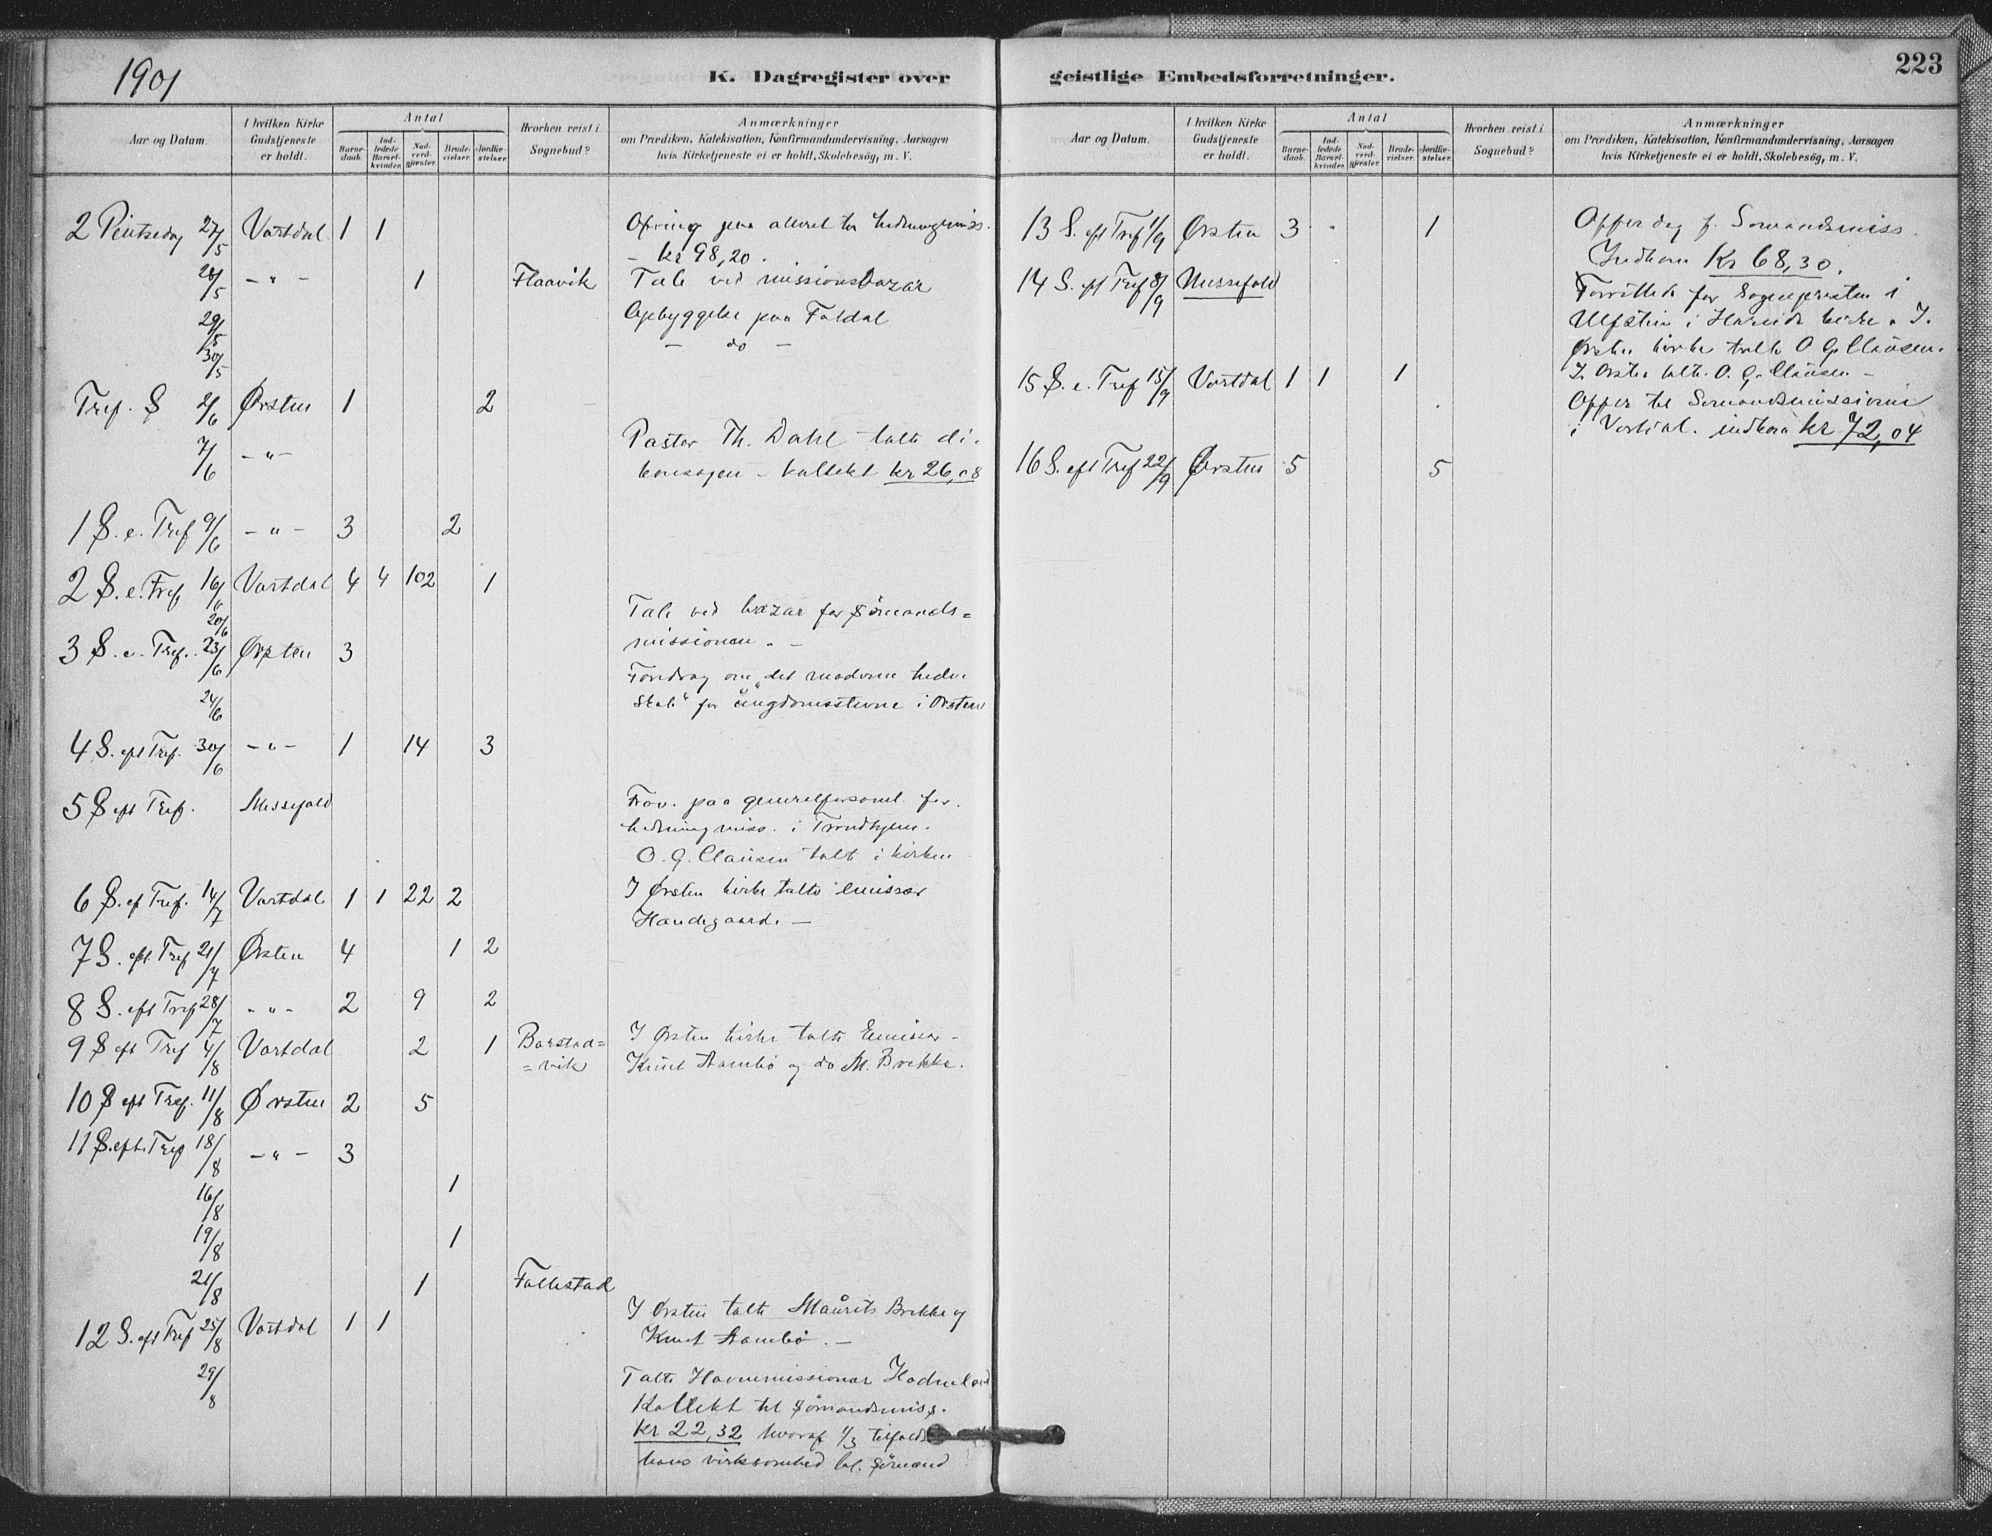 1901
K. Dagregister over
Aar og Datum.
I hvilken Kirke Gudstjeneste er holdt.
Antal
Barne-daab.
Ind-ledede Barsel-kvinder.
Nad-verd-gjester.
Brude-vielser.
Jordfæ-stelser.
Hvorhen reist i Sognebud?
Anmærkninger
om Prædiken, Katekisation, Konfirmandundervisning, Aarsagen
hvis Kirketjeneste ei er holdt, Skolebesög, m. V.
2 Pintsedag 27/5 Vartdal 1 1 Ofring paa alteret for hedningemiss.
- kr 98,20.
28/5 - " - 1 Flaavik Tale ved missionsbazar
29/5 Opbyggelse paa Foldal
30/5 - do -
Tref. S 2/6 Ørsten 1 2
7/6 - " - Pastor Th. Dahl talte di-
konsagen - kollekt kr 26,08
1 S. e. Tref 9/6 - " - 3 2
2 S. e. Tref. 16/6 Vartdal 4 4 102 1
20/6 Tale ved bazar for sømands=
missionen. -
3 S. e. Tref. 23/6 Ørsten 3
24/6 Foredrag om "det moderne heden
skab" for ungdomsstevne i Ørsten
4 S. eft Tref. 30/6 - " - 1 14 3
5 S eft Tref. Messefald Frav. paa generalforsaml. for
hedningmiss. i Trondhjem.
O. G. Clausen talte i kirken
6 S. ef Tref. 14/7 Vartdal 1 1 22 2 I Ørsten kirke talte emissær
Handegaard. -
7 S. eft. Tref 21/7 Ørsten 4 1 2
8 S. eft Tref 28/7 - " - 2 9 2
9 S eft Tref 4/8 Vartdal 2 1 Barstad=
=vik I Ørsten kirke talte Emissær
Knut Aambø og do M. Brekke.
10 S eft Tref. 11/8 Ørsten 2 5
11 S. eft. Tref 18/8 - " - 3
16/8 1
19/8 1
21/8 1 Follestad
12 S. eft Tref 25/8 Vartdal 1 1 I Ørsten talte Maurits Brekke og
Knut Aambø. -
29/8 Talte Havnemissionær Hodneland
Kollekt til sømandsmiss.
kr 22,32 hvoraf 1/3 tilfaldt
hans virksomhed bl. sømænd
geistlige Embedsforretninger.
223
Aar og Datum.
I hvilken Kirke Gudstjeneste er holdt.
Antal
Barne-daab.
Ind-ledede Barsel-kvinder.
Nad-verd-gjester.
Brude-vielser.
Jordfæ-stelser.
Hvorhen reist i Sognebud?
Anmærkninger
om Prædiken, Katekisation, Konfirmandundervisning, Aarsagen
hvis Kirketjeneste ei er holdt, Skolebesög, m. V.
13 S. eft Tref 1/9 Ørsten 3 1 Offerdag f. Sømandsmiss.
Indkom Kr 68,30.
14 S. eft Tref 8/9 Messefald Forrettede for Sognepresten i
Ulfsten i Hareids kirke. I
Ørsten kirke talte O. G. Clausen.
15 S. e. Tref 15/9 Vartdal 1 1 1 I Ørsten talte O. G. Clausen -
Offer til Sømandsmissionen
i Vartdal. indkom kr 72,04
16 S. eft Tref 22/9 Ørsten 5 5